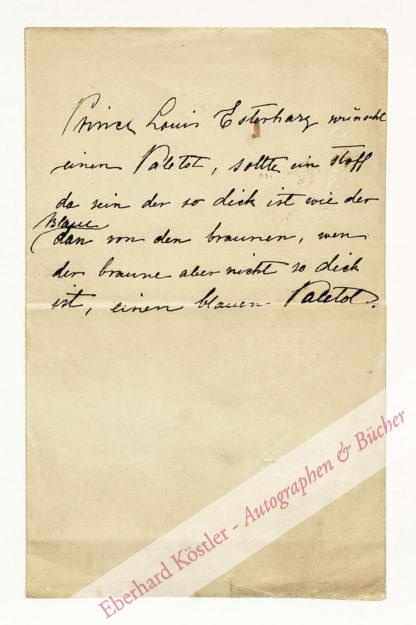 Prince Louis Esterhazy wünscht
einen Paletot, sollte ein stoff
da sein der so dick ist wie der
Blaue
dan von den braunen, wen
der braune aber nicht so dick
ist, einen blauen Paletot.
Eberhard Köstler - Autographen & Bücher